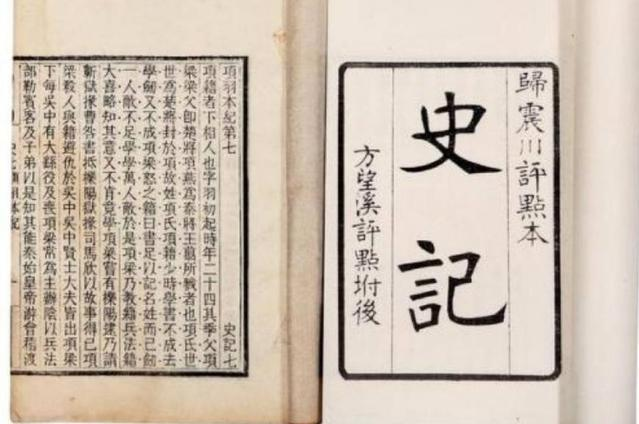 歸震川評點本
史記
方望溪評點坿後
項羽本紀第七 史記七
項籍者下相人也字羽初起時年二十四其季父項
梁梁父即楚將項燕為秦將王翦所戮者也項氏世
世為楚將封於項故姓項氏項籍少時學書不成去
學劒又不成項梁怒之籍曰書足以記名姓而已劒
一人敵不足學學萬人敵於是項梁乃教籍兵法籍
大喜略知其意又不肯竟學項梁嘗有櫟陽逮乃請
蘄獄掾曹咎書抵櫟陽獄掾司馬欣以故事得已項
梁殺人與籍避仇於吳中吳中賢士大夫皆出項梁
下每吳中有大繇役及喪項梁常為主辦陰以兵法
部勒賓客及子弟以是知其能秦始皇帝游會稽渡